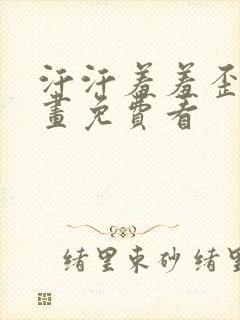 汗汗羞羞歪
畫免費看
绪里束砂绪里